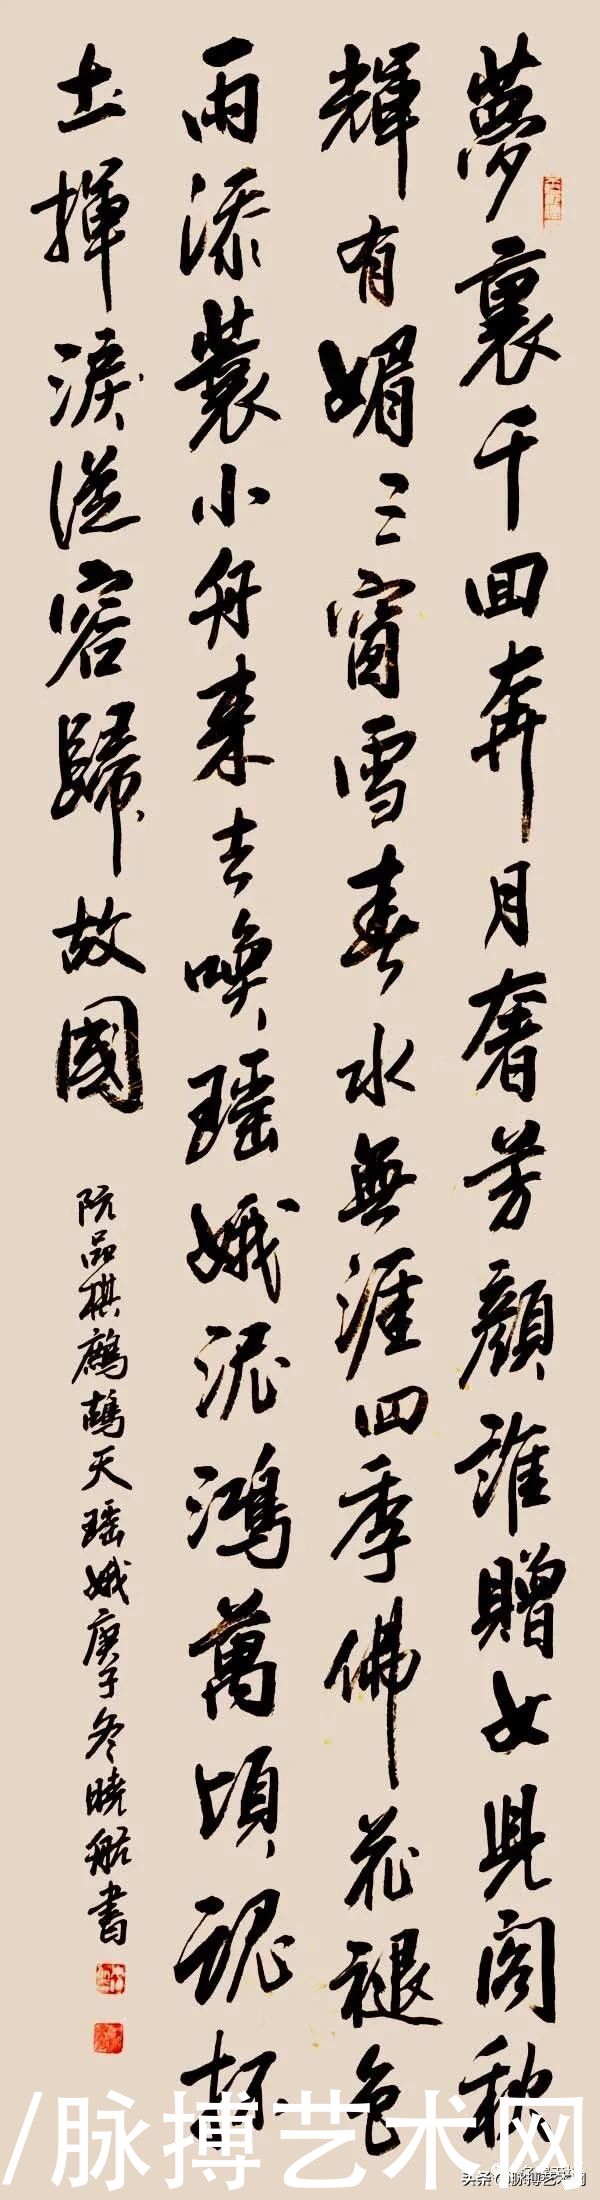 夢裏千回奔月奢芳顔誰贈女兒閣秋
輝有媚三窗雪春水無涯四季佛花褪色
雨添蓑小舟来去喚瑶娥泥鴻萬頃魂抔
土揮淚從容歸故國
阮品棋鷓鴣天瑶娥庚子冬曉船書
/脉搏艺术网
头条@脉搏艺术网